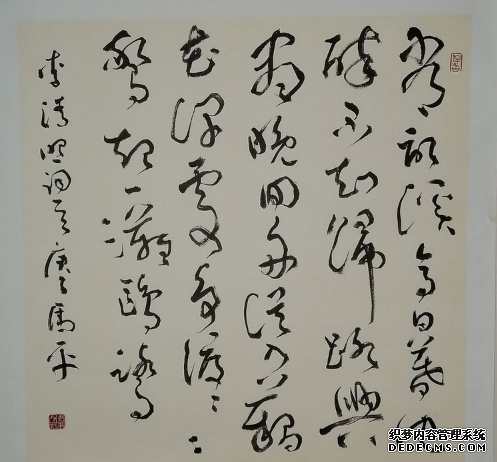 常記溪亭日暮沉
醉不知歸路興
盡晚回舟誤入藕
花深處爭渡〻〻
驚起一灘鷗鷺
李清照詞 庚子馬平
织梦内容管理系统
DEDECMS.COM